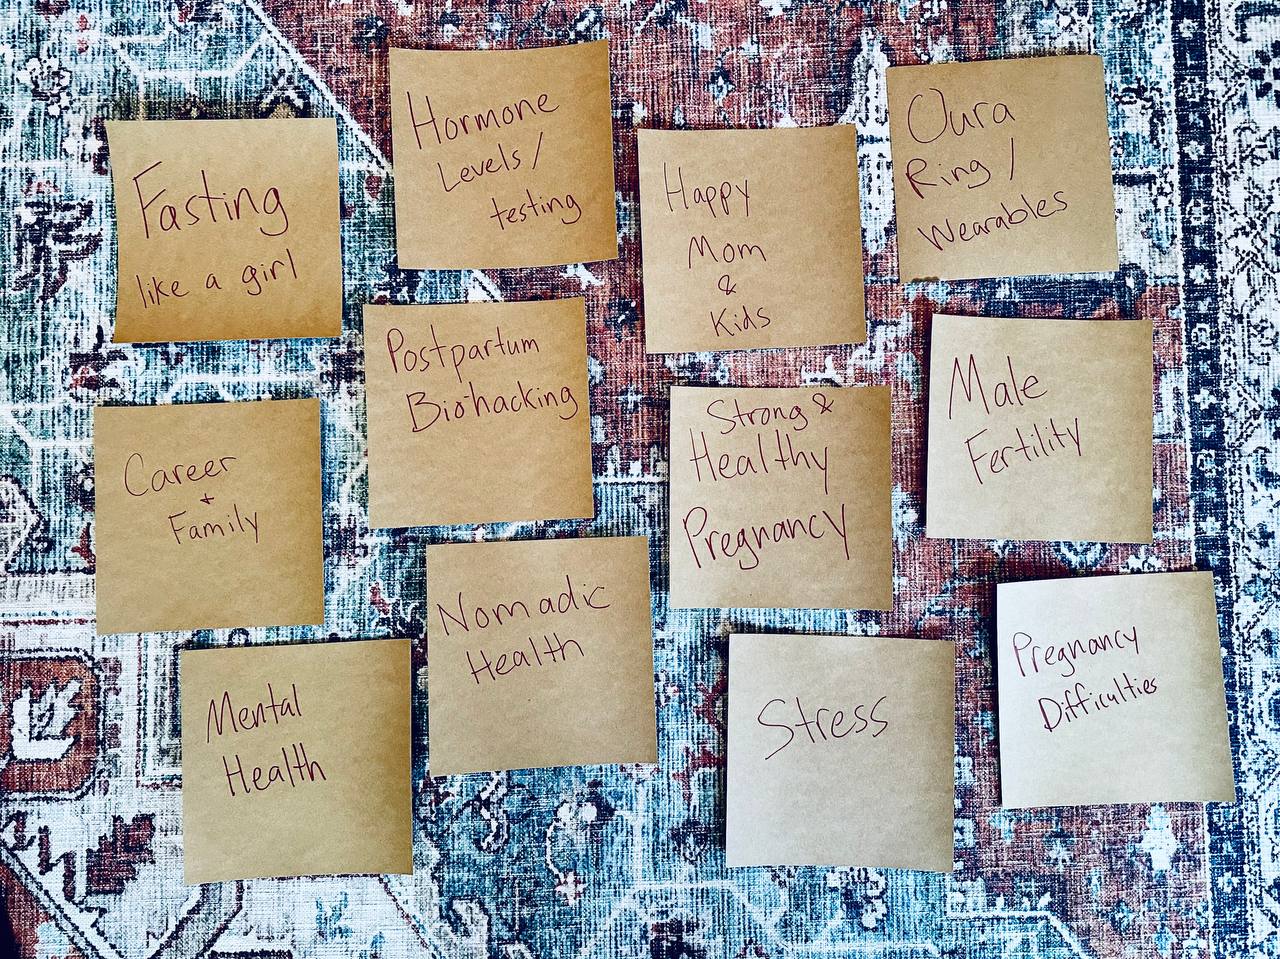 Fasting
like a girl
Hormone
Levels/
testing
Happy
Mom
&
Kids
Oura
Ring /
Wearables
Career
+
Family
Postpartum
Biohacking
Strong &
Healthy
Pregnancy
Male
Fertility
Mental
Health
Nomadic
Health
Stress
Pregnancy
Difficulties